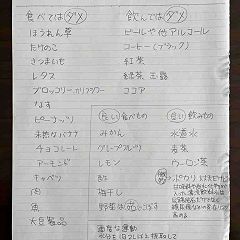 食べてはダメ
ほうれん草
たけのこ
さつまいも
レタス
ブロッコリー、カリフラワー
なす
ピーナッツ
未熟なバナナ
チョコレート
アーモンド
キャベツ
肉
魚
大豆製品
飲んではダメ
ビールや他アルコール
コーヒー(ブラック)
紅茶
緑茶 玉露
ココア
良い食べもの
みかん
グレープフルーツ
レモン
酢
梅干し
野菜は茹でこぼす
良い飲みもの
水道水
麦茶
ウーロン茶
適度な運動
水分を1日2L以上摂取して